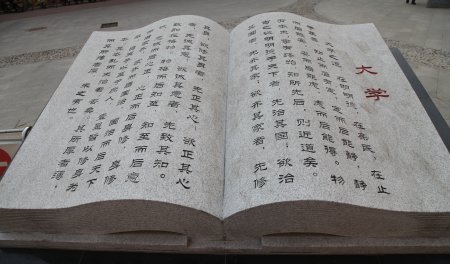 大学
大学之道，在明明德，在亲民，在止
于至善。知止而后有定，定而后能静，静
而后能安，安而后能虑，虑而后能得。物
有本末，事有终始，知所先后，则近道矣。
古之欲明明德于天下者，先治其国，欲治
其国者，先齐其家，欲齐其家者，先修
其身，欲修其身者，先正其心，欲正其心
者，先诚其意，欲诚其意者，先致其知。
致知在格物。物格而后知至，知至而后意
诚，意诚而后心正，心正而后身修，身修
而后家齐，家齐而后国治，国治而后天下
平。自天子以至于庶人，壹是皆以修身为
本。其本乱而末治者否矣，其所厚者薄，
而其所薄者厚，未之有也